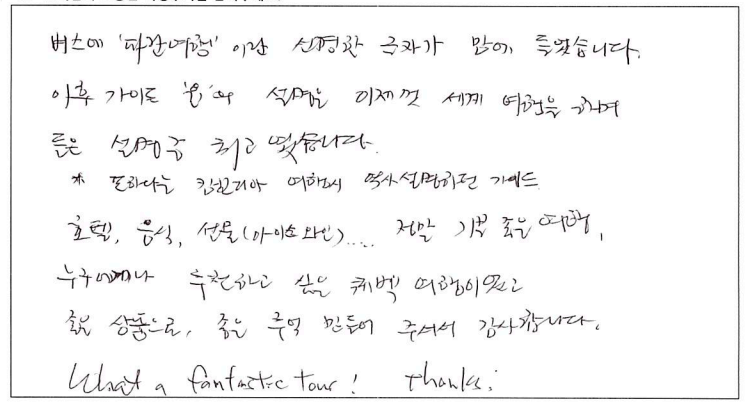 버스에 '파란여행' 이란 선명한 글자가 맘에 들었습니다.
이후 가이드 '윤'의 설명은 이제껏 세계 여행을 하며
들은 설명중 최고였습니다.
* 또하나는 캄보디아 여행시 역사설명하던 가이드
호텔, 음식, 선물(아이스와인).... 정말 기분 좋은 여행,
누구에게나 추천하고 싶은 퀘벡 여행이었고
좋은 상품으로, 좋은 추억 만들어 주셔서 감사합니다.
What a fantastic tour! Thanks!